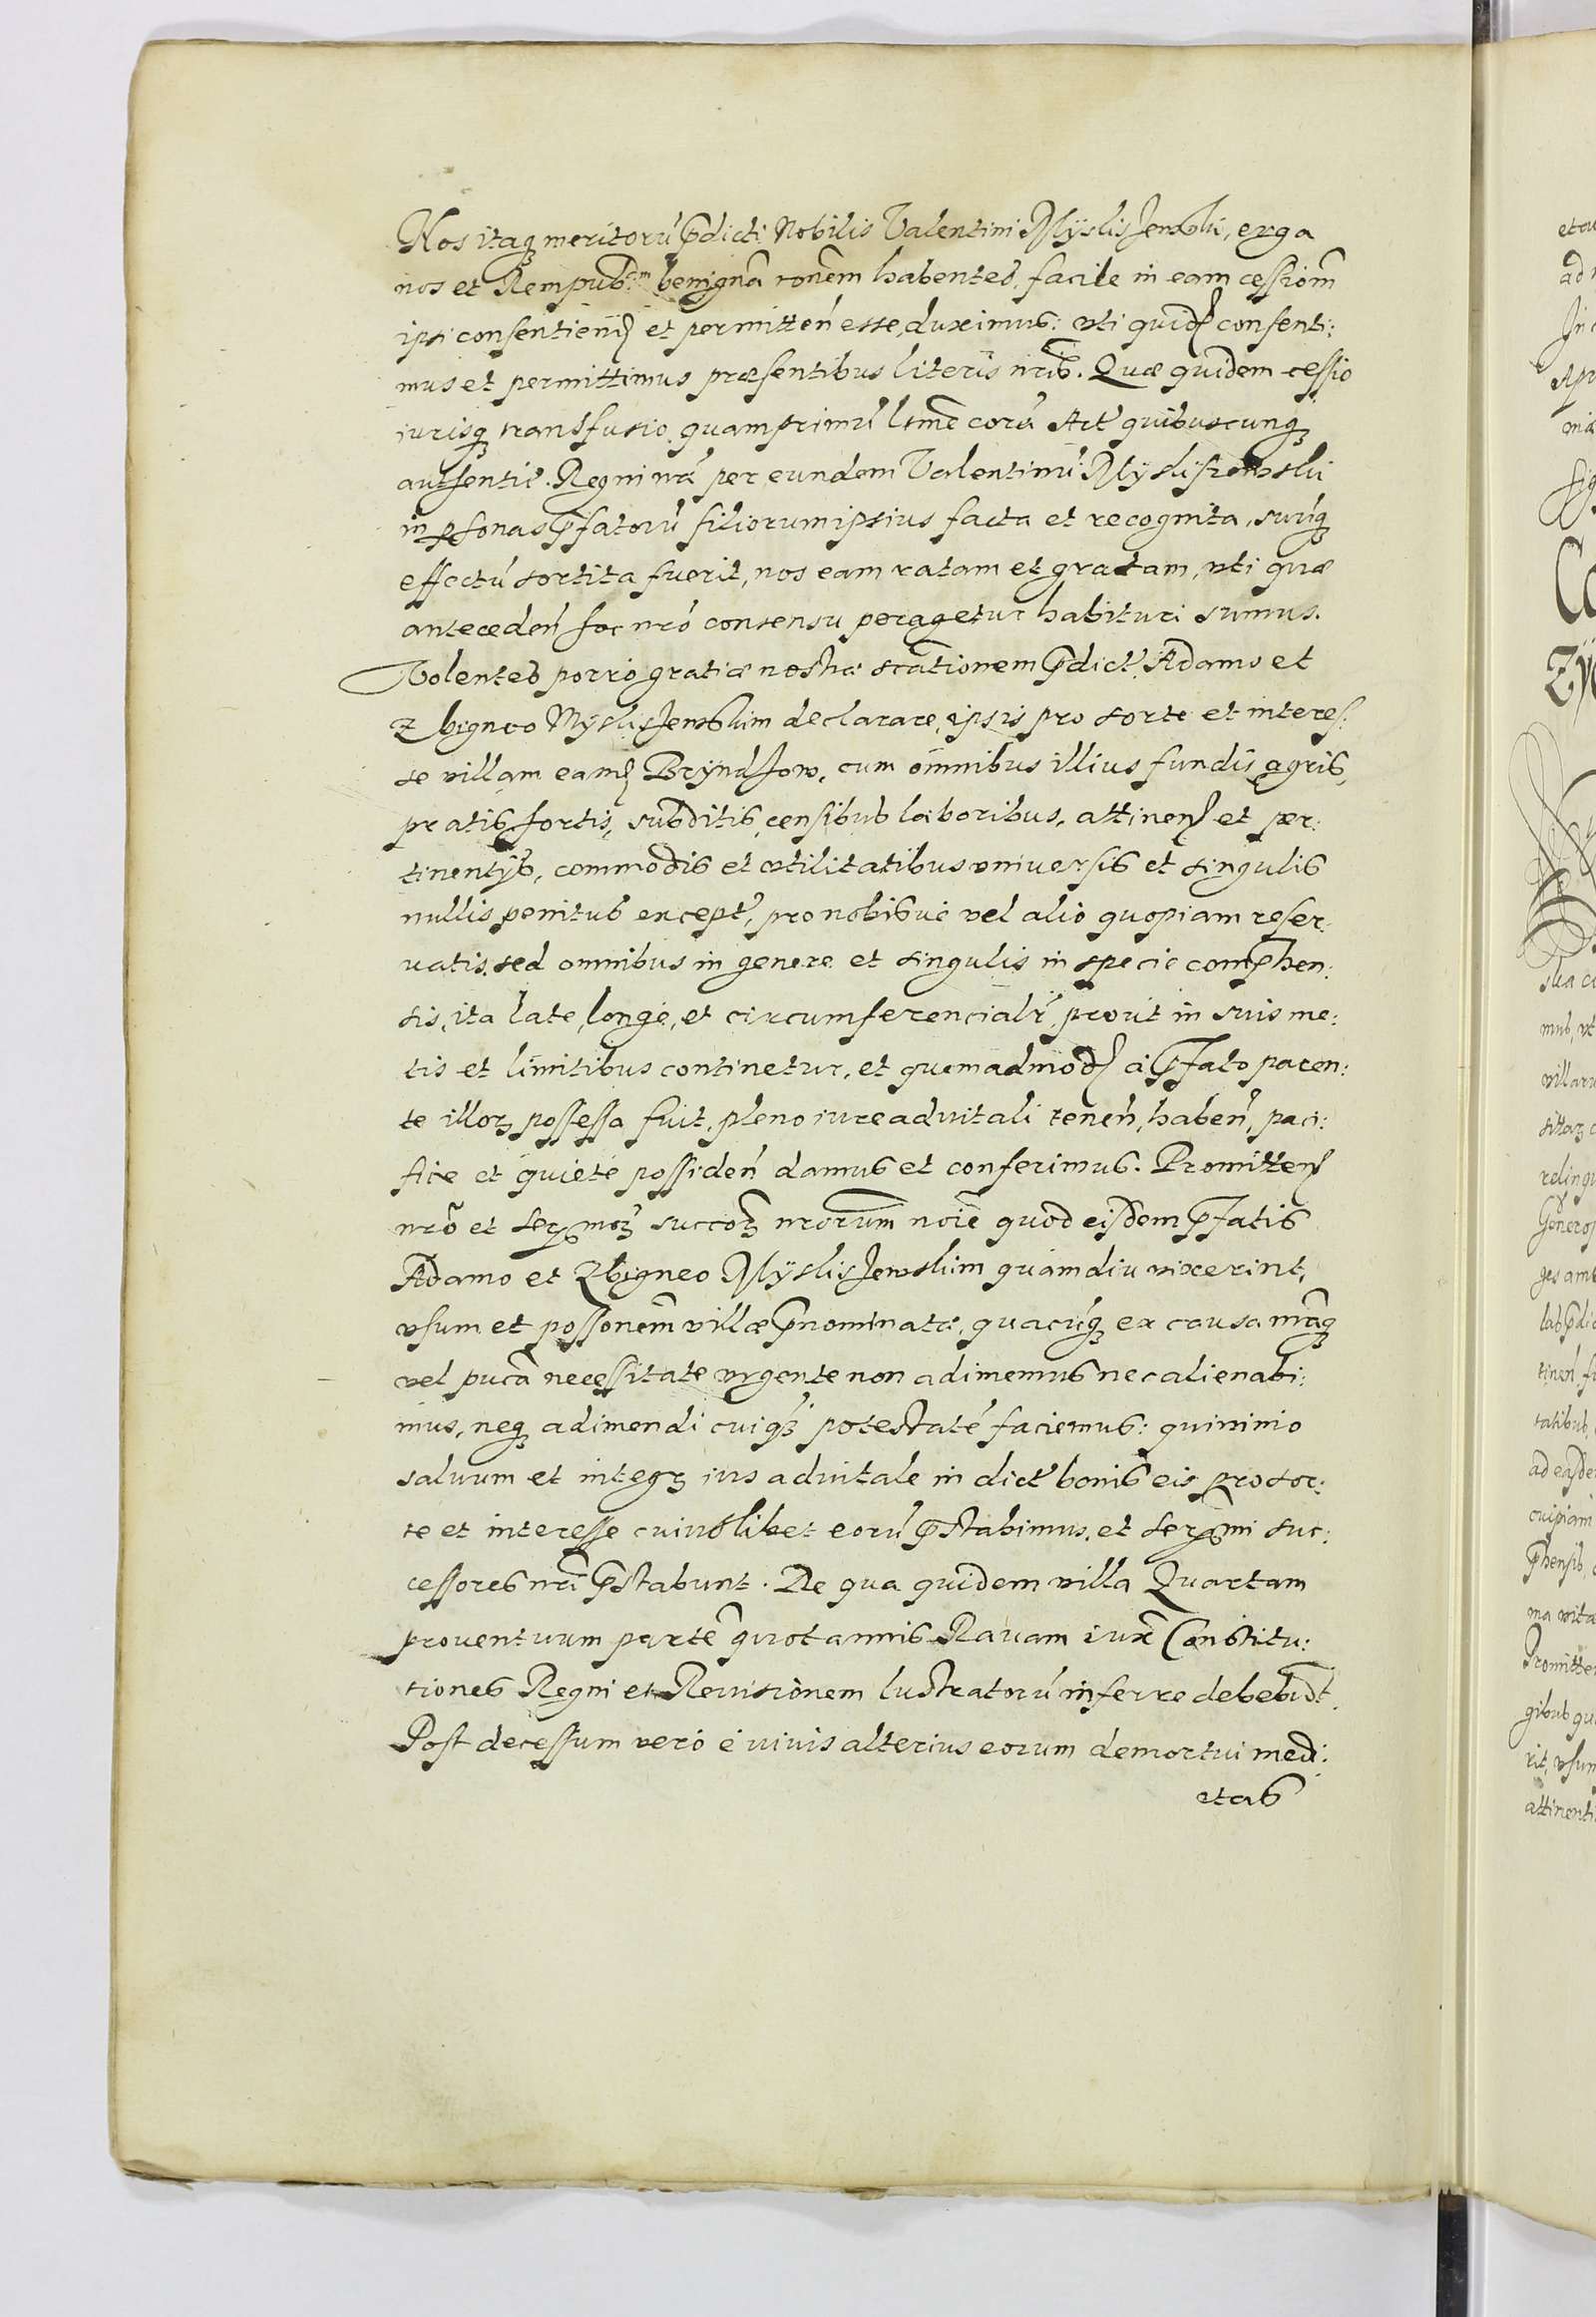 Nos itaq meritorũ p̃dicti Nobilis Valentini Myslisзewski, erga
nos et Rempub:cm benignã rõnem habentes, facile in eam cessiõm
ipsi consentien̄ et permitten̄ esse, duximus: uti quidẽ consenti:
mus et permittimus præsentibus literis nr̃is. Quæ quidem cessio
iurisq transfusio quamprimũ ltmẽ corã Act' quibuscunq
autħentic' Regni nr̃i per eundem Valentinũ Myslisзewski
in psonas p̃fatorũ filiorum ipsius facta et recognita, suũq
effectũ sortita fuerit, nos eam ratam et gratam, uti quæ
anteceden̄ hoc nr̃o consensu peragetur habituri sumus.
Volentes porro gratiæ nostræ st̃ationem p̃dict' Adamo et
Zbigneo Myslisзewskim declarare, ipsis pro sorte et interes:
se villam eand̃ Bryndзow, cum omnibus illius fundis, agris,
pratis, hortis, subditis, censibus laboribus, attinen̄ et per:
tinentijs, commodis et utilitatibus universis et singulis
nullis penitus except', pro nobis uè vel alio quopiam reser:
vatis, sed omnibus in genere et singulis in specie comp̃hen:
sis, ita late, longe, et circumferencialr̃, prout in suis me:
tis et limitibus continetur, et quemadmod̃ à p̃fato paren:
te illoꝝ possessa fuit, pleno iure aduitali tenen̄, haben̄, paci:
fice et quiete possiden̄ damus et conferimus. Promitten̄
nr̃o et Serꝫmoꝝ succoꝝ nrorum noĩe quod eisdem p̃fatis
Adamo et Zbigneo Myslisзewskim quamdiu vixerint,
usum et possonẽm villæ p̃nominatæ, quacũq ex causa mãq
vel pucã necessitate urgente non adimemus nec alienabi:
mus, neq adimendi cuiq̃ potestatẽ faciemus: quinimo
saluum et integꝝ ius aduitale in dict' bonis eis pro sor:
te et interesse cuiuslibet eorũ p̃stabimus, et Serꝫmi suc:
cessores nr̃i p̃stabunt. De qua quidem villa Quartam
prouentuum partẽ quotannis Rauam iux̃ Constitu:
tiones Regni et Reuisionem lustratorũ inferre debebũt.
Post decessum vero è vivis alterius eorum demortui medi:
etas